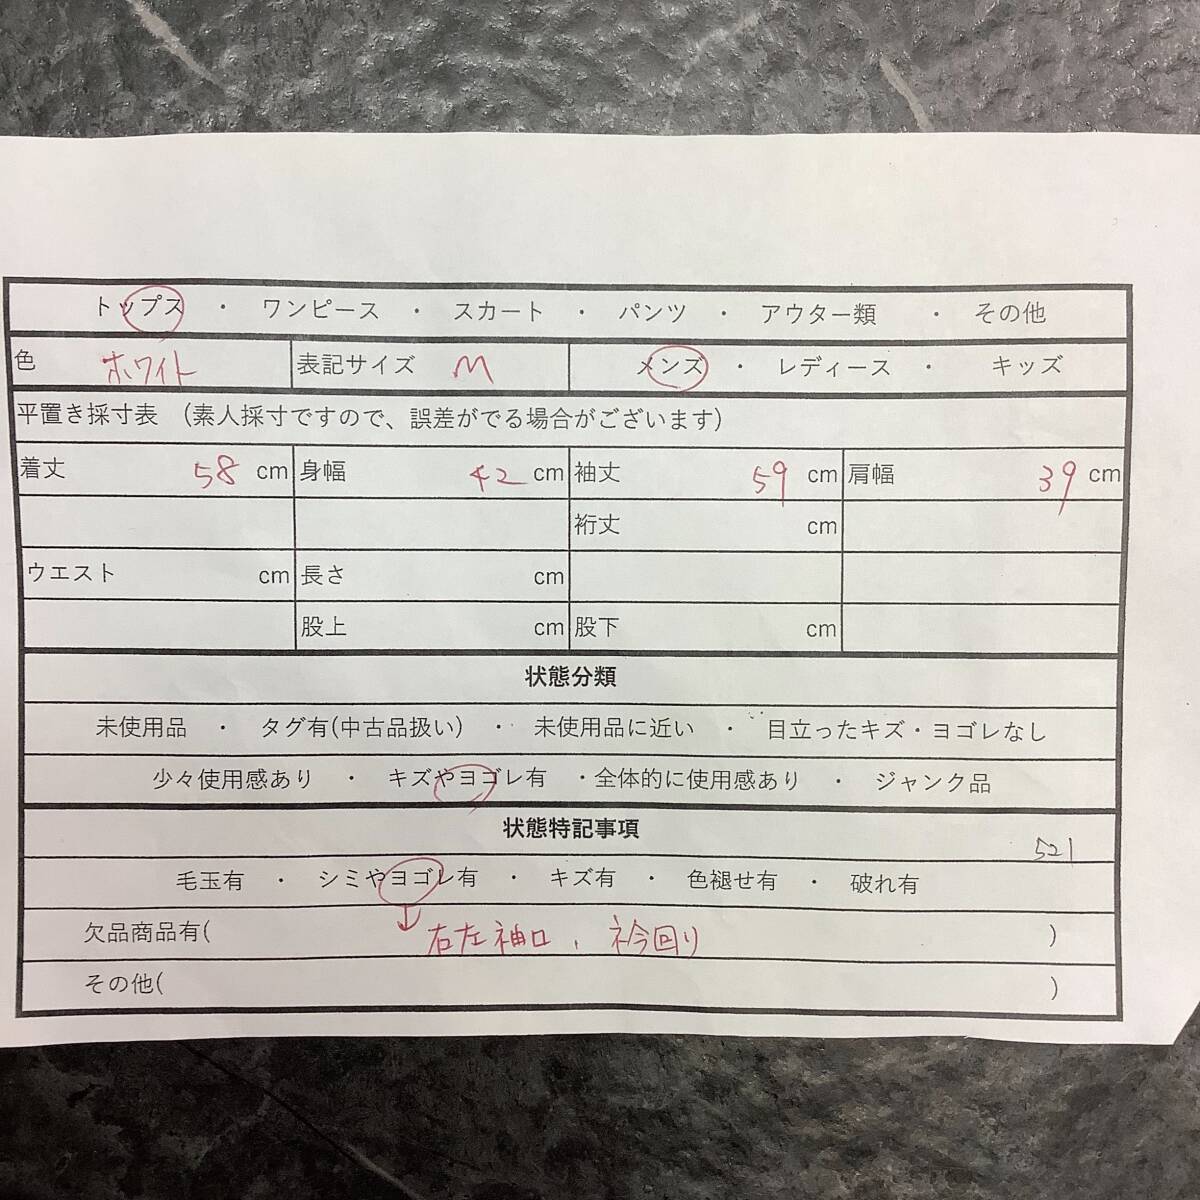 トップス ・ ワンピース ・ スカート ・ パンツ ・ アウター類 ・ その他
色 ホワイト 表記サイズ M メンズ ・ レディース ・ キッズ
平置き採寸表 （素人採寸ですので、誤差がでる場合がございます）
着丈 58 cm 身幅 42 cm 袖丈 59 cm 肩幅 39 cm
裄丈 cm
ウエスト cm 長さ cm
股上 cm 股下 cm
状態分類
未使用品 ・ タグ有(中古品扱い) ・ 未使用品に近い ・ 目立ったキズ・ヨゴレなし
少々使用感あり ・ キズやヨゴレ有 ・全体的に使用感あり ・ ジャンク品
状態特記事項 521
毛玉有 ・ シミやヨゴレ有 ・ キズ有 ・ 色褪せ有 ・ 破れ有
欠品商品有( →右左袖口、衿回り )
その他( )